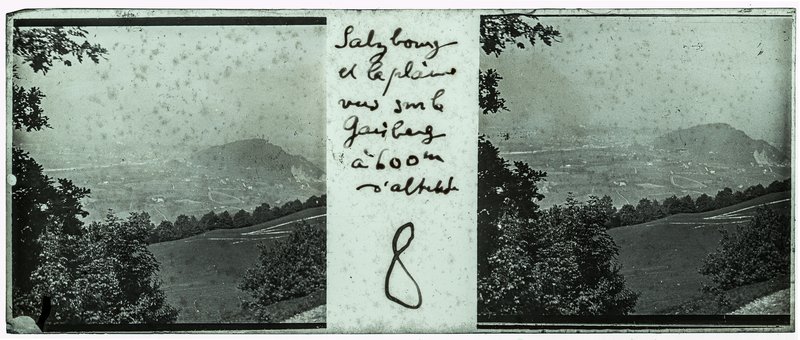 Salzbourg
et la plaine
vus sur le
Gaisberg
à 600m
d'altitude
8